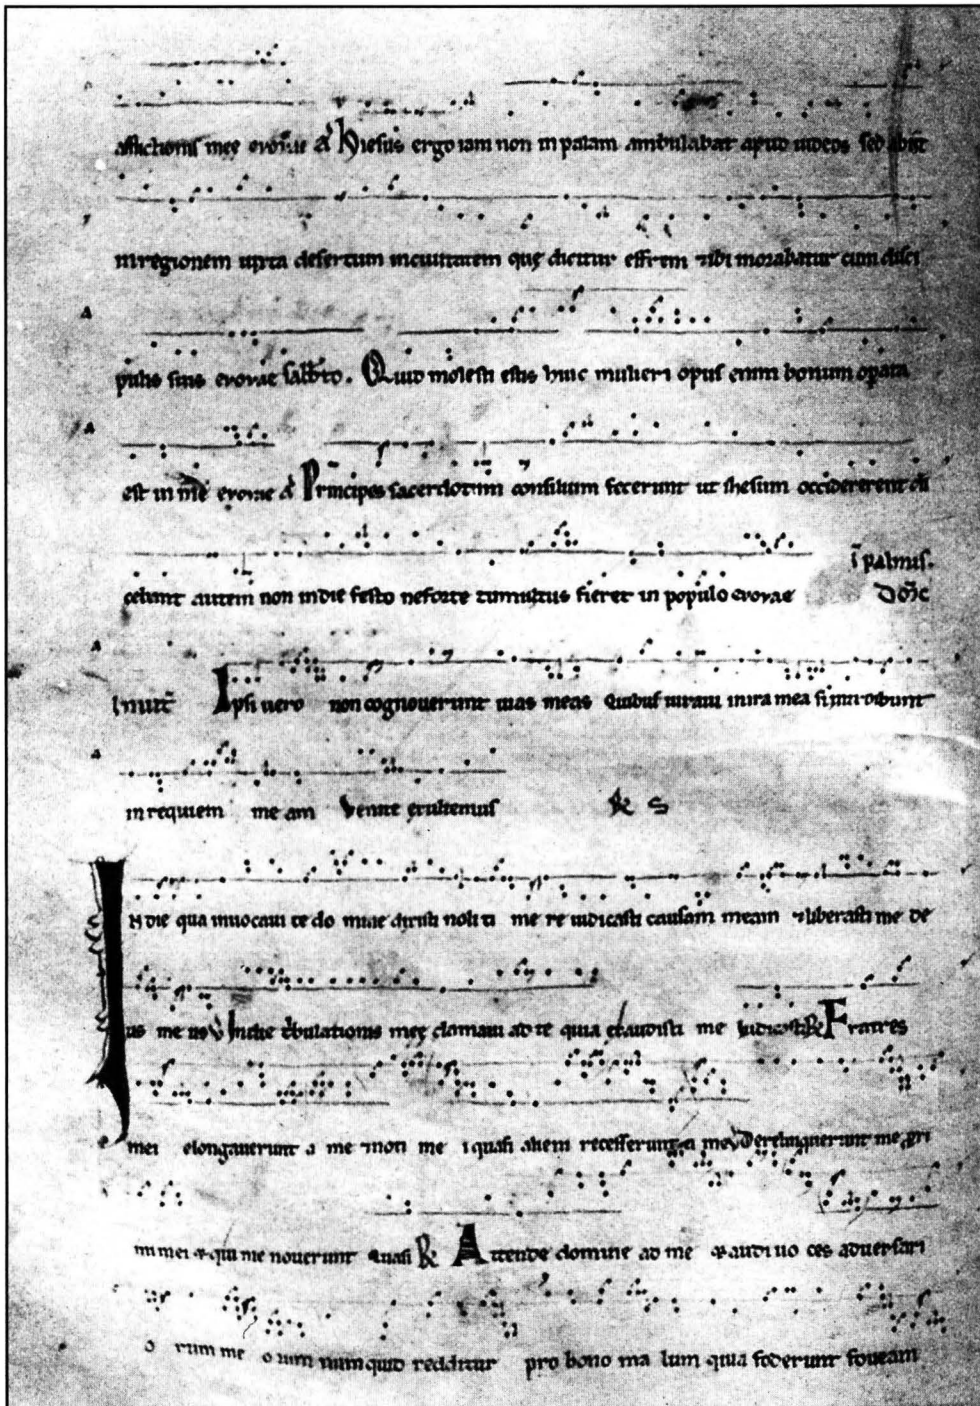 afflictionis mee evovae A Hiesus ergo iam non in palam ambulabat apud iudeos sed abiit
in regionem iuxta desertum in civitatem quę dicitur effrem & ibi morabatur cum disci
pulis suis evovae Quid molesti estis huic mulieri opus enim bonum opata
est in me evovae A Principes sacerdotum consilium fecerunt ut ihesum occidererent di
cebant autem non in die festo ne forte tumultus fieret in populo evovae
I palmis.
Ipsi vero non cognoverunt vias meas Quibus iuravi in ira mea si introibunt
in requiem me am Venite exultemus & S
IN die qua invocavi te do mine dixisti noli ti me re iudicasti causam meam & liberasti me de
us me us V In die tribulationis meę clamavi ad te quia exaudisti me Iudicasti R Fratres
mei elongaverunt a me & noti me i quasi alieni recesserunt a me V Derelinquerunt me pri
mi mei & qui me noverunt Quasi R Attende domine ad me & audi vo ces adversari
o rum me o rum numquid redditur pro bono ma lum quia foderunt foveam